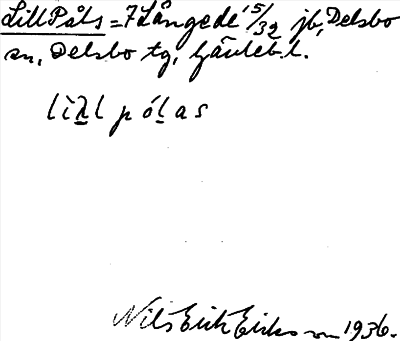 Lill Påls = 7 Långede 5/32 jb, Delsbo
sn, Delsbo tg, Gävleb. l.
lìƛl pólas
Nils Erik Eriksson 1936.